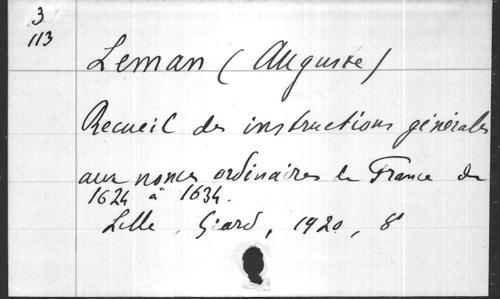 3
113
Leman (Auguste)
Recueil des instructions générales
aux nonces ordinaires de France de
1624 à 1634.
Lille, Giard, 1920, 8°